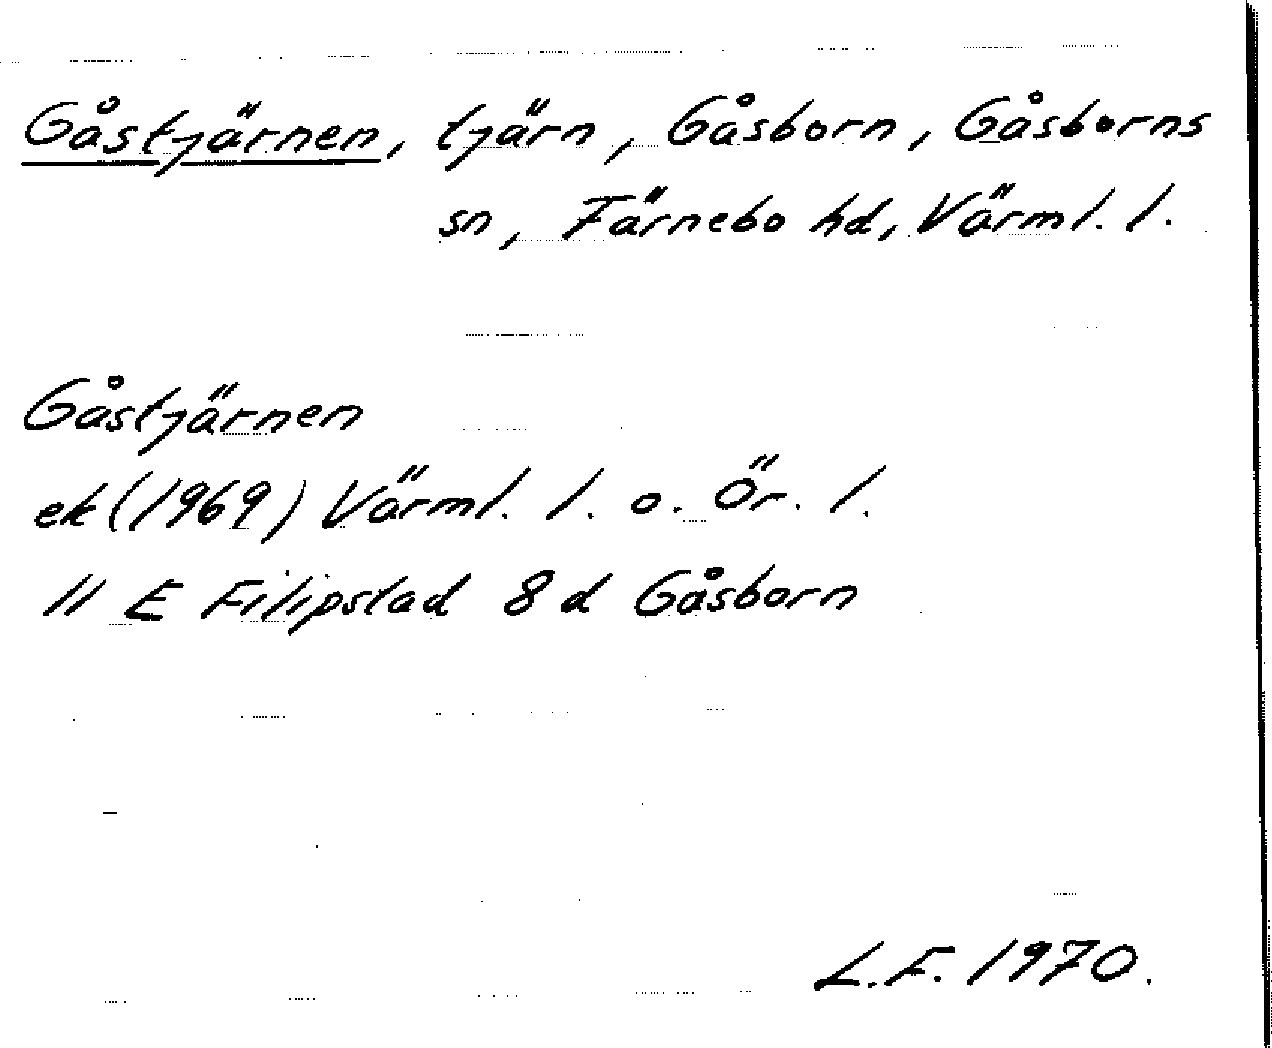 Gåstjärnen, tjärn, Gåsborn, Gåsborns
sn, Färnebo hd, Värml. l.
Gåstjärnen
ek (1969) Värml. l. o. Ör. l.
11 E Filipstad 8 d Gåsborn
L.F. 1970.